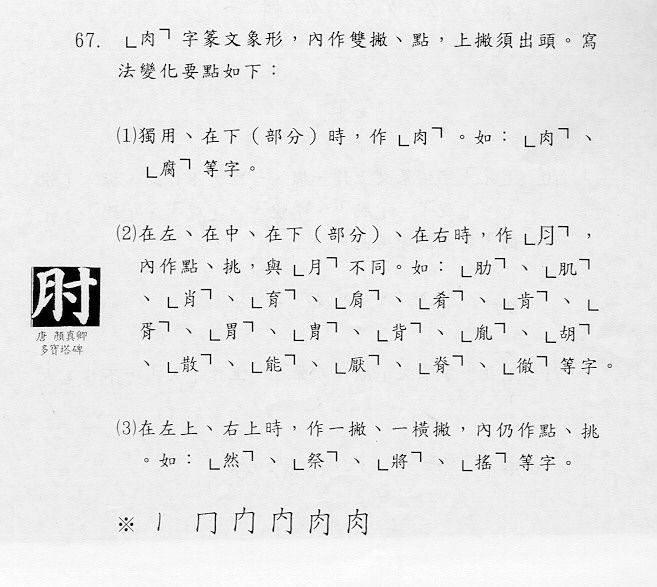 67. 「肉」字篆文象形，內作雙撇、點，上撇須出頭。寫
法變化要點如下：
⑴獨用、在下（部分）時，作「肉」。如：「肉」、
「腐」等字。
⑵在左、在中、在下（部分）、在右時，作「⺼」，
內作點、挑，與「月」不同。如：「肋」、「肌」
、「肖」、「育」、「肩」、「肴」、「肯」、「
胥」、「胃」、「冑」、「背」、「胤」、「胡」
、「散」、「能」、「厭」、「脊」、「徹」等字。
⑶在左上、右上時，作一撇、一橫撇，內仍作點、挑
。如：「然」、「祭」、「將」、「搖」等字。
肘
唐 顏真卿
多寶塔碑
※ 丨 冂 內 肉